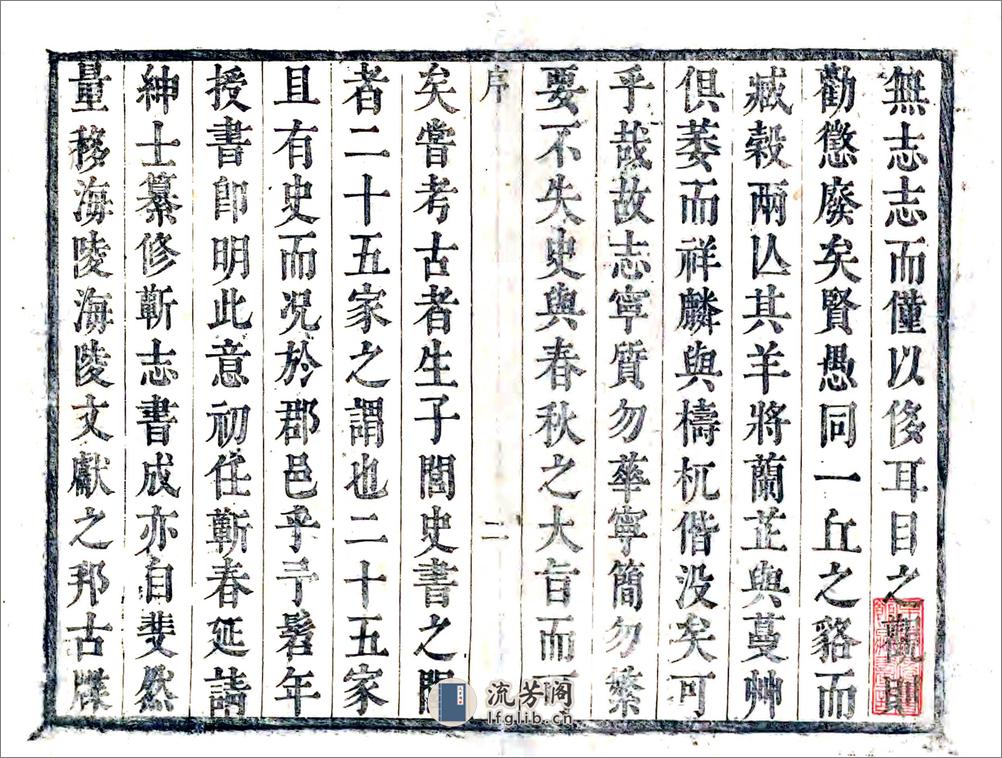 無志志而僅以侈耳目之觀則
勸懲廢矣賢愚同一丘之貉而
臧穀兩亾其羊將蘭芷與蔓艸
俱萎而祥麟與檮杌偕没矣可
乎哉故志寧質勿華寧簡勿繁
要不失史與春秋之大旨而
序
二
矣嘗考古者生子閭史書之閭
者二十五家之謂也二十五家
且有史而况於郡邑乎予髫年
授書卽明此意初任蘄春延請
紳士纂修蘄志書成亦自斐然
量移海陵海陵文獻之邦古牒
流芳阁
lfglib.cn